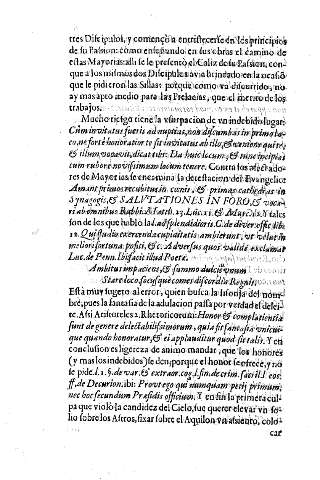 tres Discipulos, y començò a entristecerse en los principios
de su Passion: como enseñando en sus obras el camino de
estas Mayorias: alli se le presentò el Caliz de su Passion, con-
que a los mismos dos Discipulos avia brindado en la ocasiō
que le pidieron las Sillas: porque como va discurrido, no
ay mas apto medio para las Prelacias, que el merito de los
trabajos.
Mucho riesgo tiene la vsurpacion de vn indebido lugar:
Cùm invitatus fueris ad nuptias, non discumbas in primo lo-
co, ne forte honoratior te sit invitatus ab illo, & veniens qui te,
& illum vocavit, dicat tibi: Da huic locum, & tunc incipias
cum rubore novissimum locum tenere. Contra los afectados
de Mayorias se encamina la detestacion del Evangelio:
Amant primos recubitus in cœnis, & primas cathedras in
Synagogis, & SALVTATIONES IN FORO, & voca-
ri ab omnibus Rabbi. Matth. 23. Luc. 11. & Marc. 12. Y tales
son de los que hablò la l. ad splendidioris. C. de divers. offic. lib.
12. Qui fluxu exercendæ cupiditatis ambierunt, vt velut in
meliori fortuna positi, &c. Adversus quos validè exclamat
Luc. de Penn. ibi facit illud Poetæ.
Ambitus impatiens, & summo dulcius vnum
Stare loco, sociisque comes discordia Regnis.
Està muy sugeto al error, quien busca la lisonja del nom-
bre, pues la fantasia de la adulacion passa por verdad el delei-
te. Assi Aristoteles 2. Rhetoricorum: Honor & complacentia
sunt de genere delectabilissimorum, quia fit fantasia vnicui-
que quando honoratur, & ei applauditur quod sit talis. Y en
conclusion es ligereza de animo mandar, que los honores
(y mas los indebidos) se dèn; porque el honor se ofrece, y no
se pide. l. 1. §. de war. & extraor. cog. l. sin. de crim. sacril. l. eos
ff. de Decurion. ibi: Provego qui nunquam petii primum;
nec hoc secundum Præsidis officium. Y en fin la primera cul-
pa que violò la candidez del Cielo, fue querer elevar vn so-
lio sobre los Astros, fixar sobre el Aquilon vn assiento, colo-
car